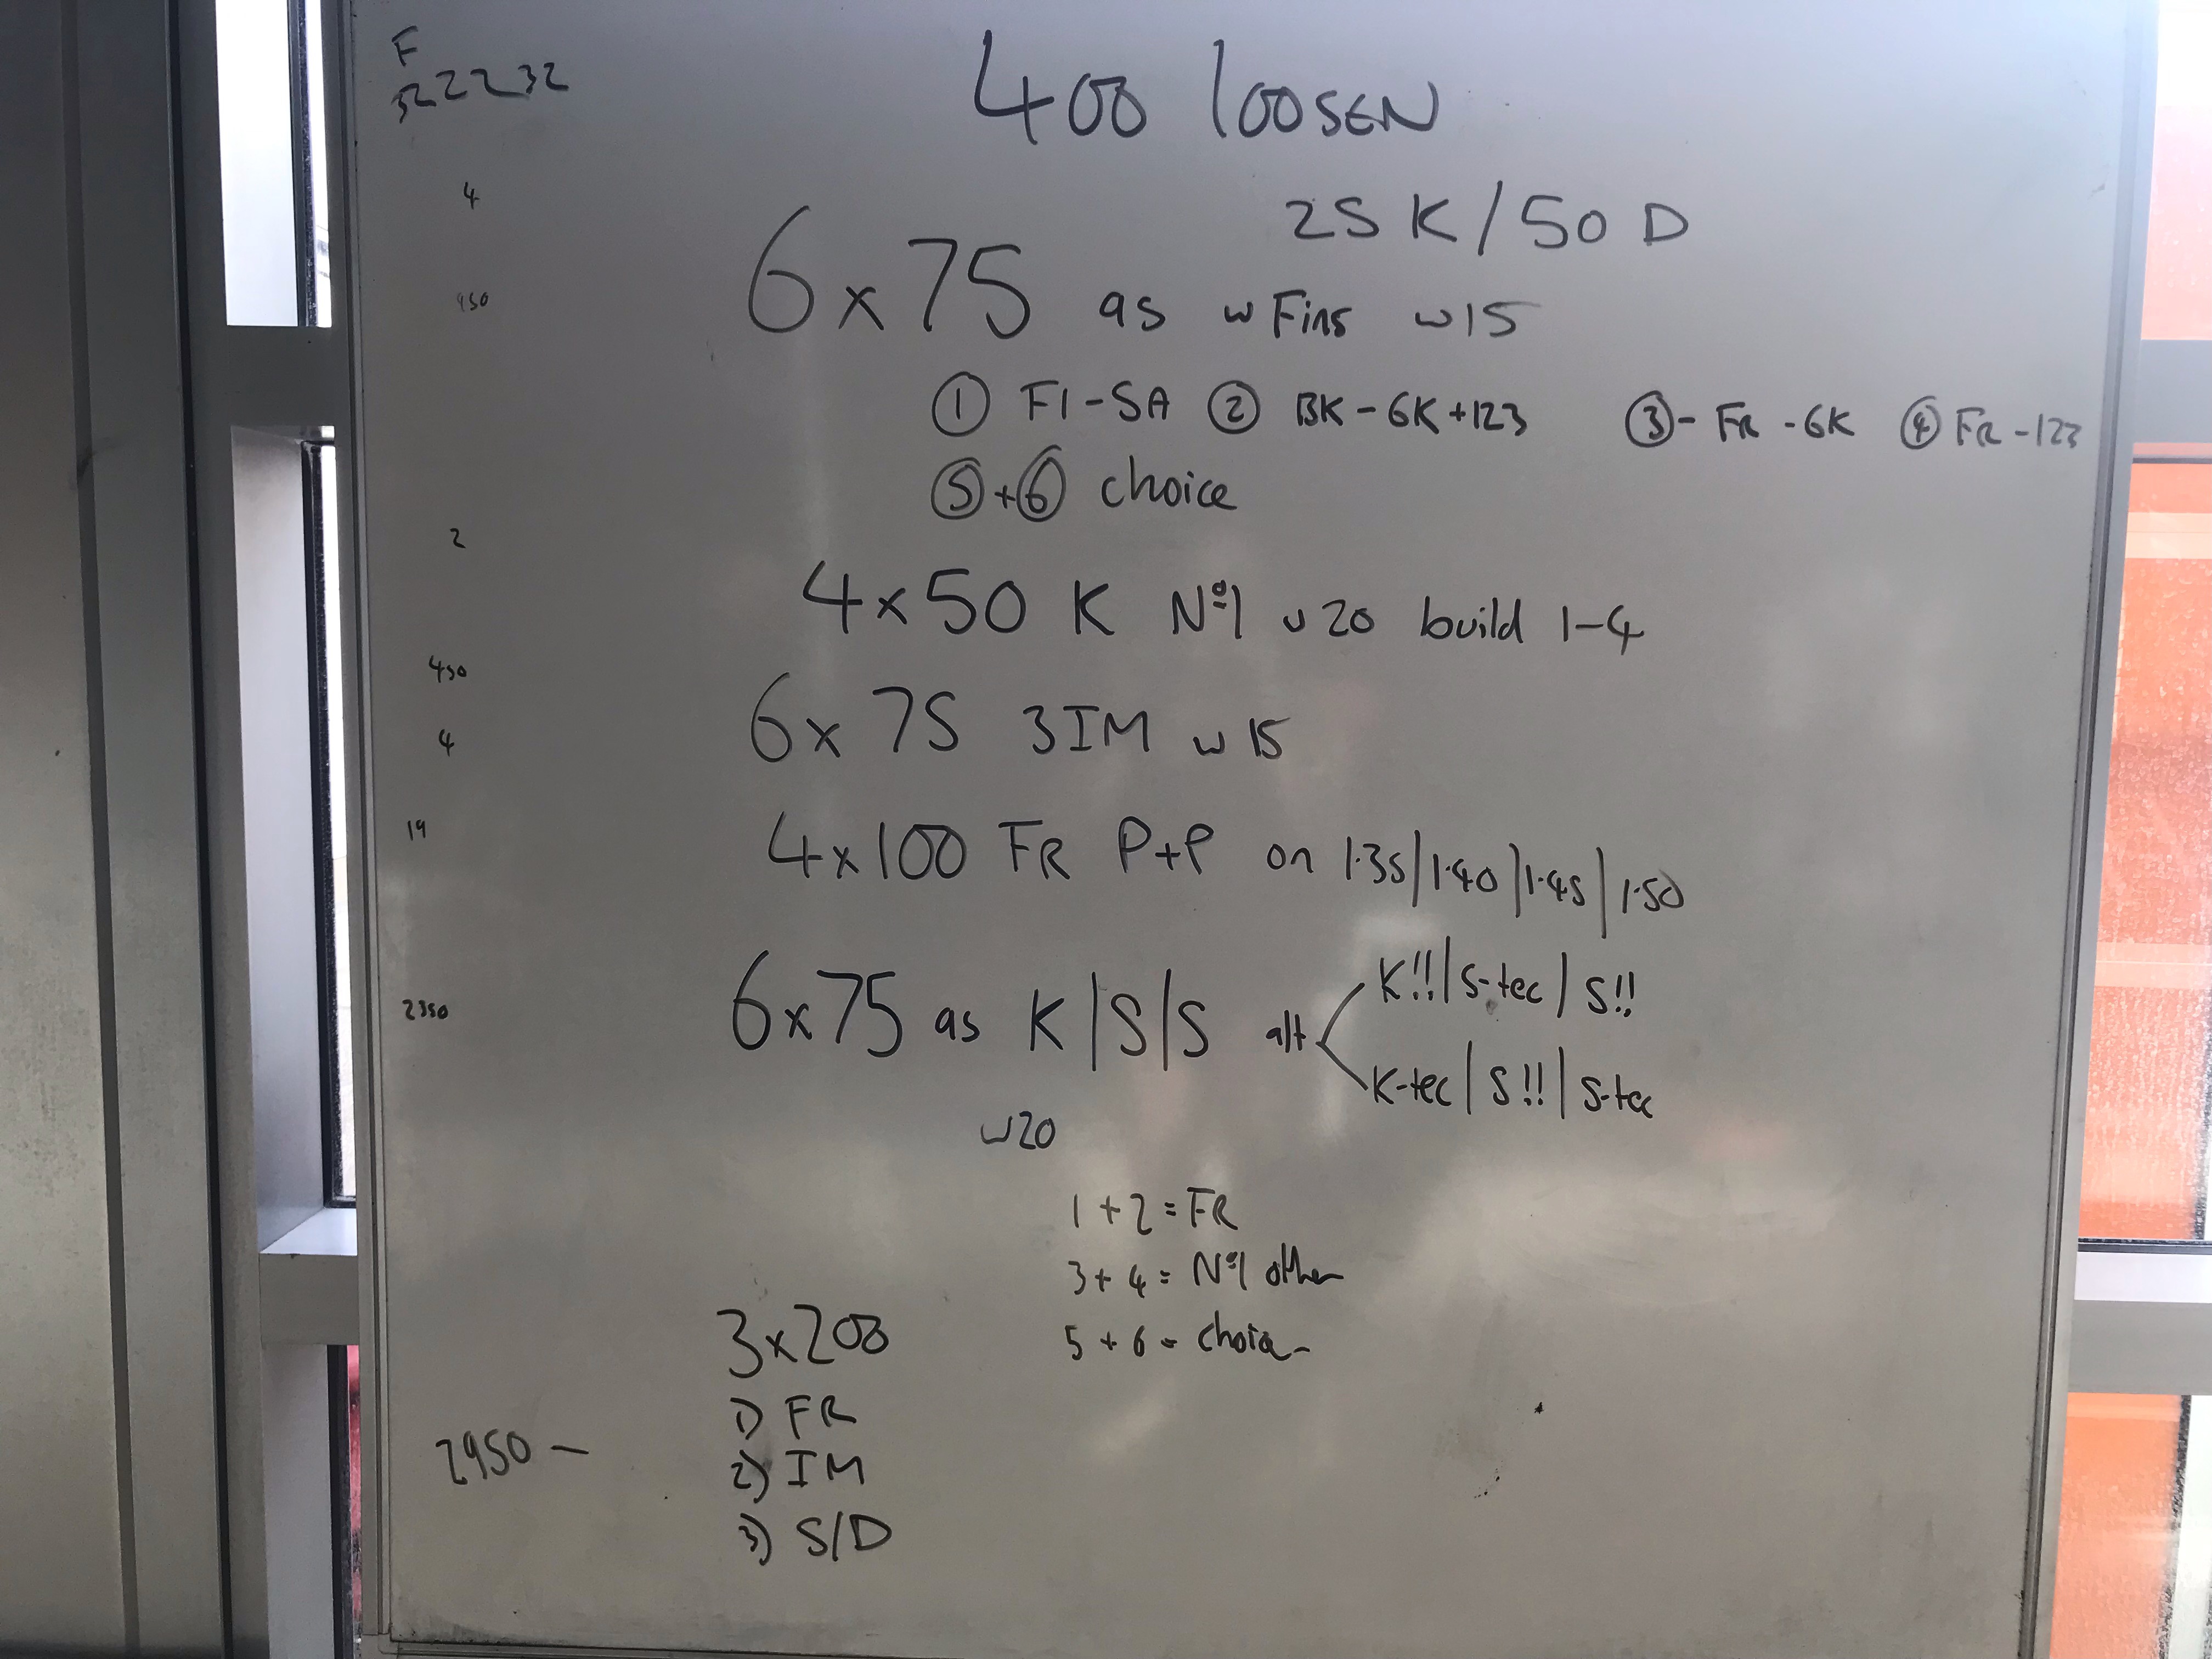 F
322232
400 loosen
4
25 K/50 D
6x75 as w Fins w15
450
① F1-SA ② BK-6K+123 ③- FR -6K ④ FR-123
⑤+⑥ choice
2
4x50 K Nº1 w20 build 1-4
450
6x 75 3IM w 15
4
19
4x100 FR P+P on 1.35|1.40|1.45|1.50
K!!|S-tec|S!!
2350
6x75 as K|S|S alt
K-tec|S!!|S-tec
w20
1+2=FR
3+4= Nº1 other
5+6= choice
3x200
1) FR
2950 -
2) IM
3) S/D